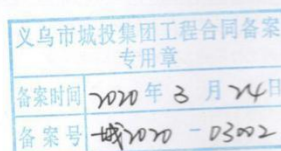 义乌市城投集团工程合同备案
专用章
备案时间 2020 年 3 月 24 日
备案号 城2020 - 03002